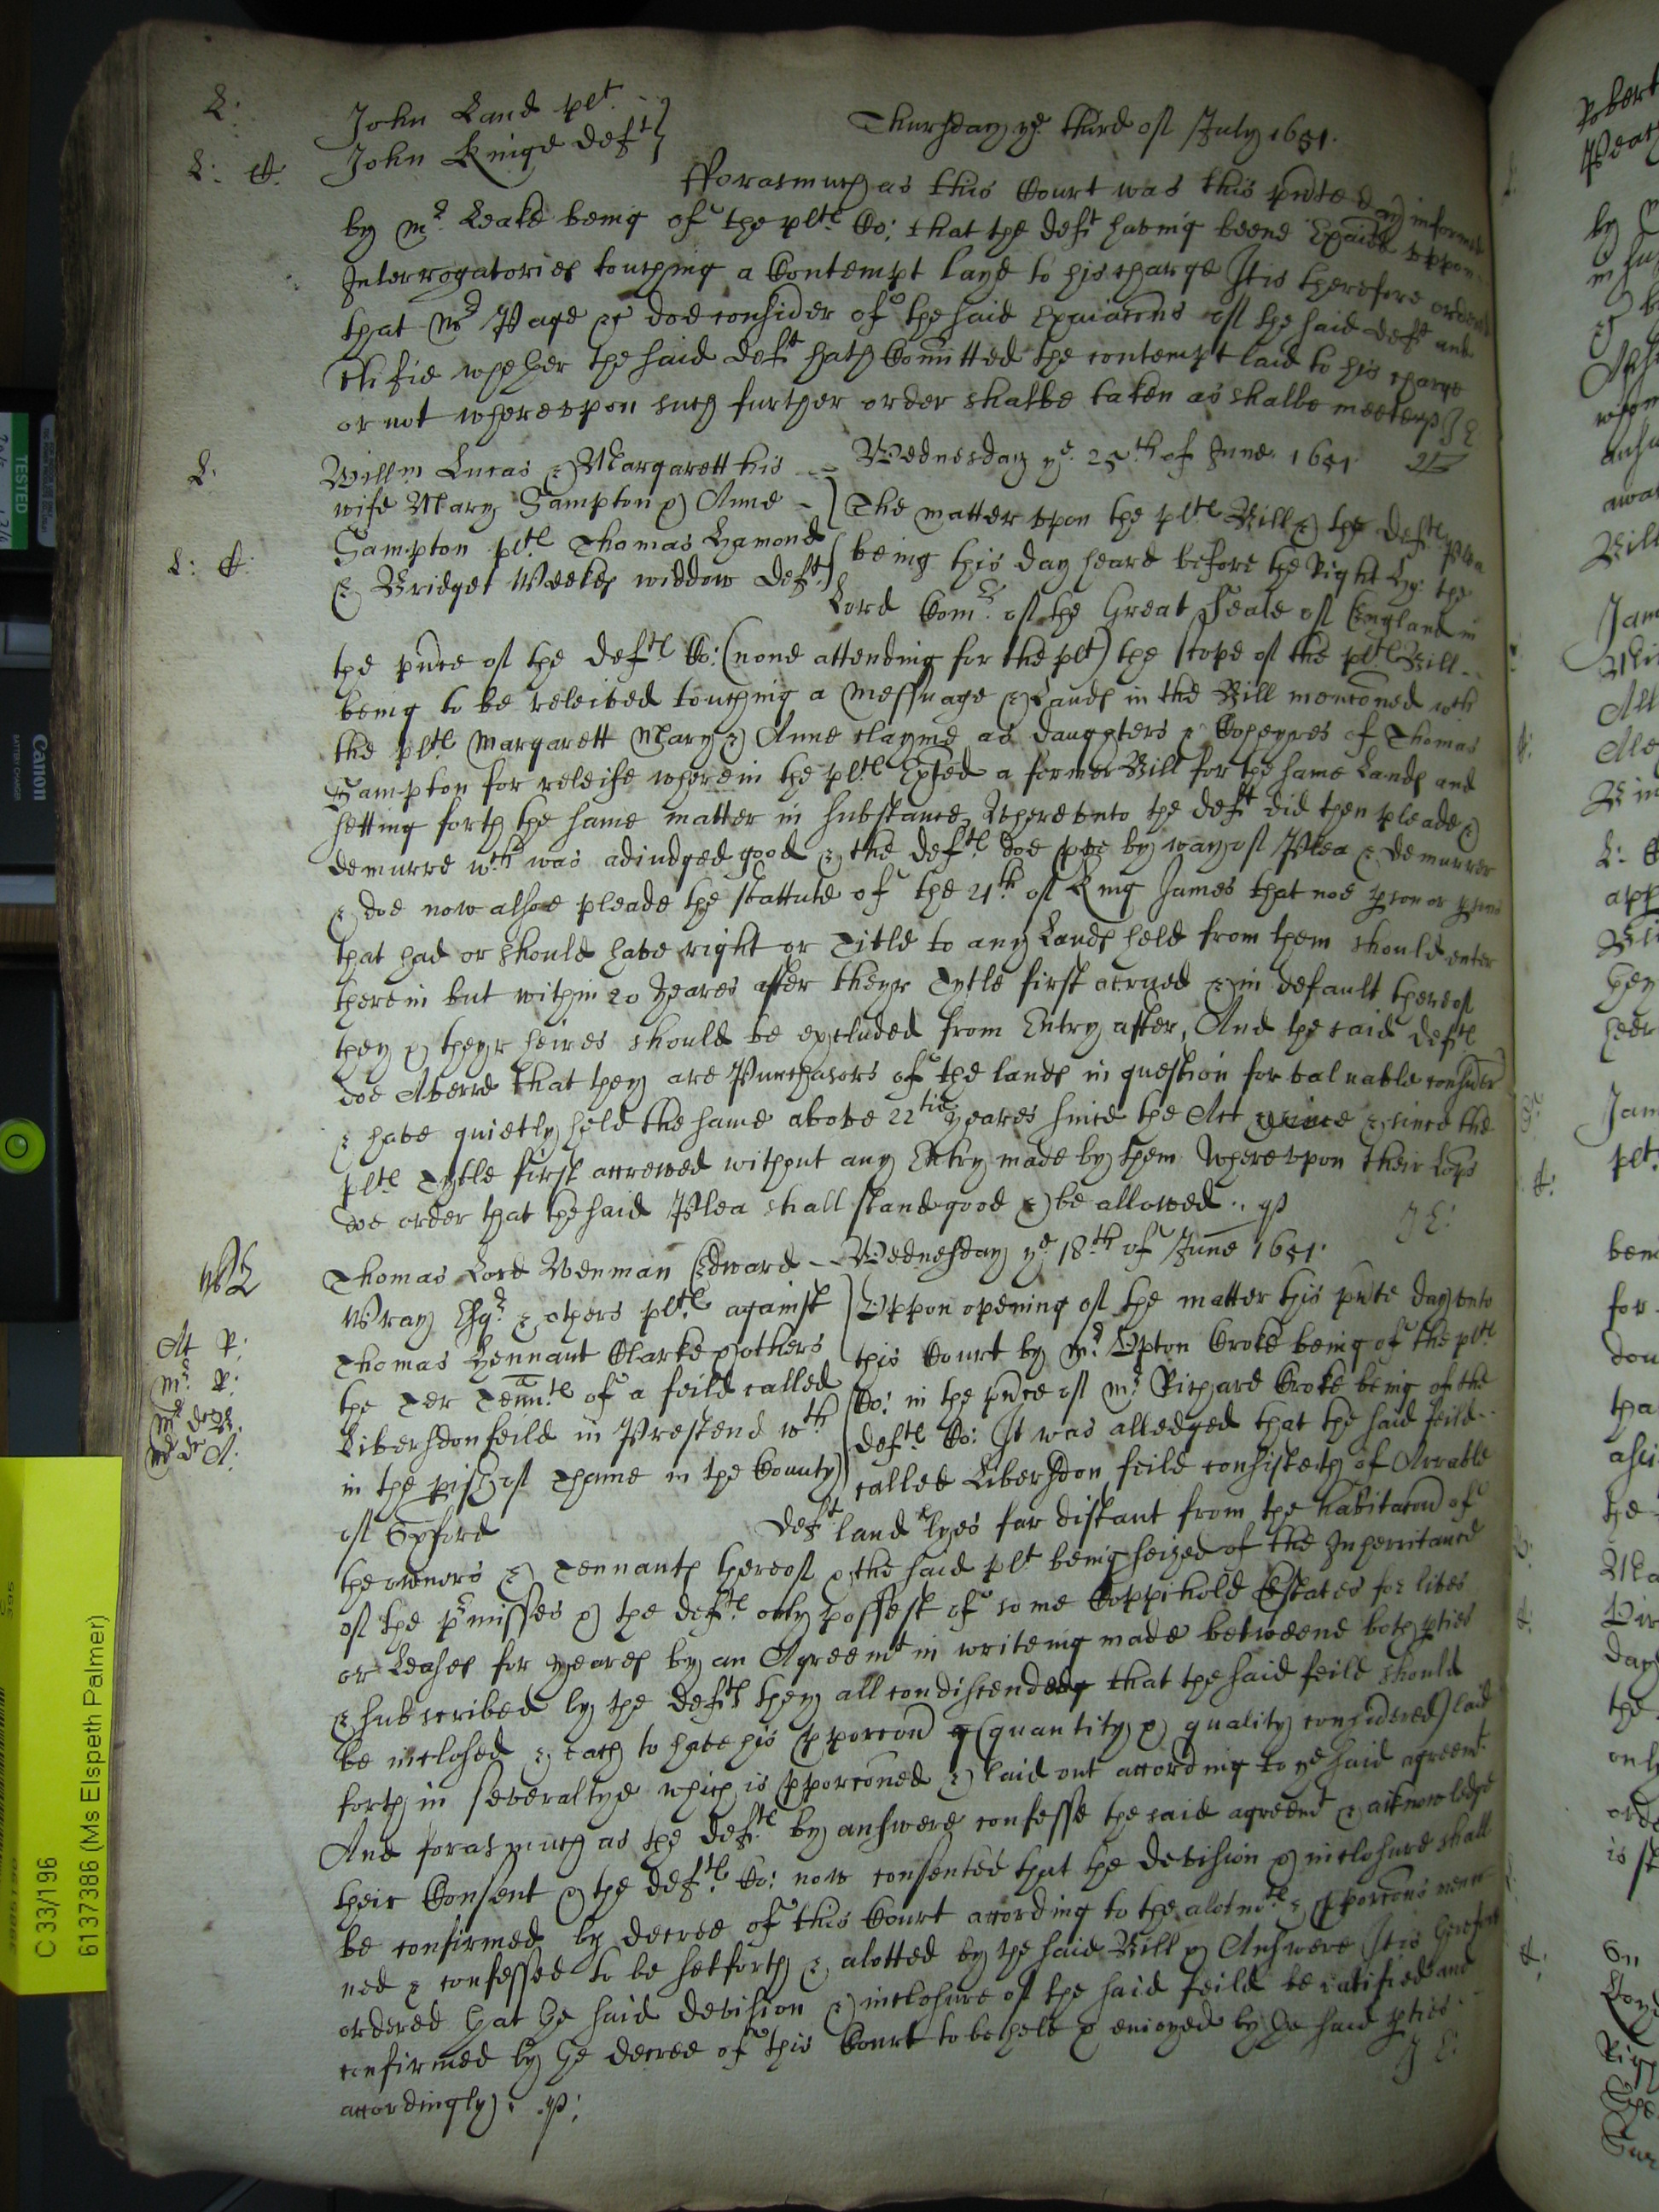 John Land plt
John Kinge Deft
Thursday ye third of July 1651.
L:
L: ct.
fforasmuch as this Court was this pnte day informed
by Mr Leake being of the pltes Co: that the deft having beene Exaied uppon
Interrogatories touching a Contempt layd to his charge It is therefore ordered
that Mr Page doe consider of the said Exaiacons of the said deft and
certifie whether the said deft hath Comitted the contempt laid to his charge
or not whereupon such further order shalbe taken as shalbe meete
J E
L.
L: ct.
Willm Lucas & Margarett his
wife Mary Sampton & Anne
Sampton pltes Thomas Hamond
& Bridget Weekes widdow Defts
Wednesday ye 25th of June 1651
The matter upon the pltes Bill & the Deftes plea
being this day heard before the Right Ho: the
Lord Comrs of the Great Seale of England in
the pnce of the Deftes Co: (none attending for the plt) the scope of the pltes Bill
being to be releived touching a messuage & Lands in the Bill menconed wch
the pltes Margarett Mary & Anne clayme as daughters & Coheyres of Thomas
Sampton for releife wherein the pltes Exhted a former Bill for the same Lands and
setting forth the same matter in substance, Whereunto the deft did then pleade &
demurre wch was adiudged good & the deftes doe by way of Plea & demurrer
& doe now alsoe pleade the stattute of the 21th of King James that noe pson or psons
that had or should have right or Title to any Lands held from them should enter
therein but within 20 yeares after theyr Tytle first acrued & in default thereof
they & theyr heires should be excluded from Entry after, And the said deftes
doe Averre that they are Purchasors of the lands in question for valuable consider
& have quietly held the same above 22tie yeares since the Act & since the
pltes Tytle first accrewed without any Entry made by them Whereupon their Lopps
doe order that the said Plea shall stand good & be allowed
J E:
At R:
Mr R:
Thomas Lord Wenman Edward
Wray Esqr & others pltes against
Thomas Hennant Clarke & others
the Ter Tennts of a feild called
Libersdonfeild in Prestend wth
in the pish of Thame in the County
of Oxford Deft
Wednesday ye 18th of June 1651.
Uppon opening of the matter this pnte day unto
this Court by Mr Upton Croke being of the pltes
Co: in the pnce of Mr Richard Croke being of the
deftes Co: It was alledged that the said feild
called Libersdon feild consisteth of Arrable
land & lyes far distant from the habitacon of
the owners & Tennants thereof & the said plt being seized of the Inheritance
of the pmisses & the deftes only possest of some Coppihold Estates for lives
or Leases for yeares by an Agreemt in writeing made betweene both pties
& subscribed by the defts they all condiscended that the said feild should
be inclosed & each to have his pporcon (quantity & quality considered) laid
forth in severaltye which is pporconed & laid out according to ye said agreemt
And forasmuch as the deftes by answere confesse the said agreemt & acknowledge
their Consent & the deftes Co: now consented that the devision & inclosure shall
be confirmed by decree of this Court according to the alotmts & pporcons menco
ned & confessed to be setforth & alotted by the said Bill & Answere It is therefore
ordered that the said devision & inclosure of the said feild be ratified and
confirmed by the decree of this Court to be held & enioyed by the said pties
accordingly
J E:
C 33/196
6137386 (Ms Elspeth Palmer)
TESTED
Canon
BATTERY CHARGER